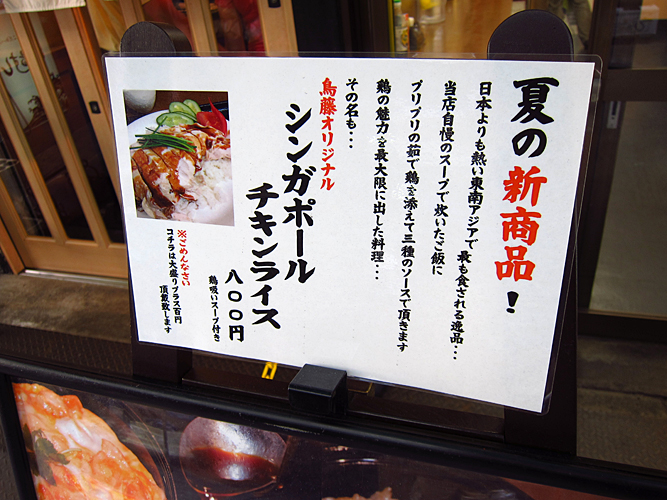 夏の新商品！
日本よりも熱い東南アジアで最も食される逸品・・・
当店自慢のスープで炊いたご飯に
プリプリの茹で鶏を添えて三種のソースで頂きます
鶏の魅力を最大限に出した料理・・・
その名も・・・
鳥藤オリジナル
シンガポール
チキンライス
八〇〇円
鶏吸いスープ付き
※ごめんなさい
コチラは大盛りプラス百円
頂戴致します